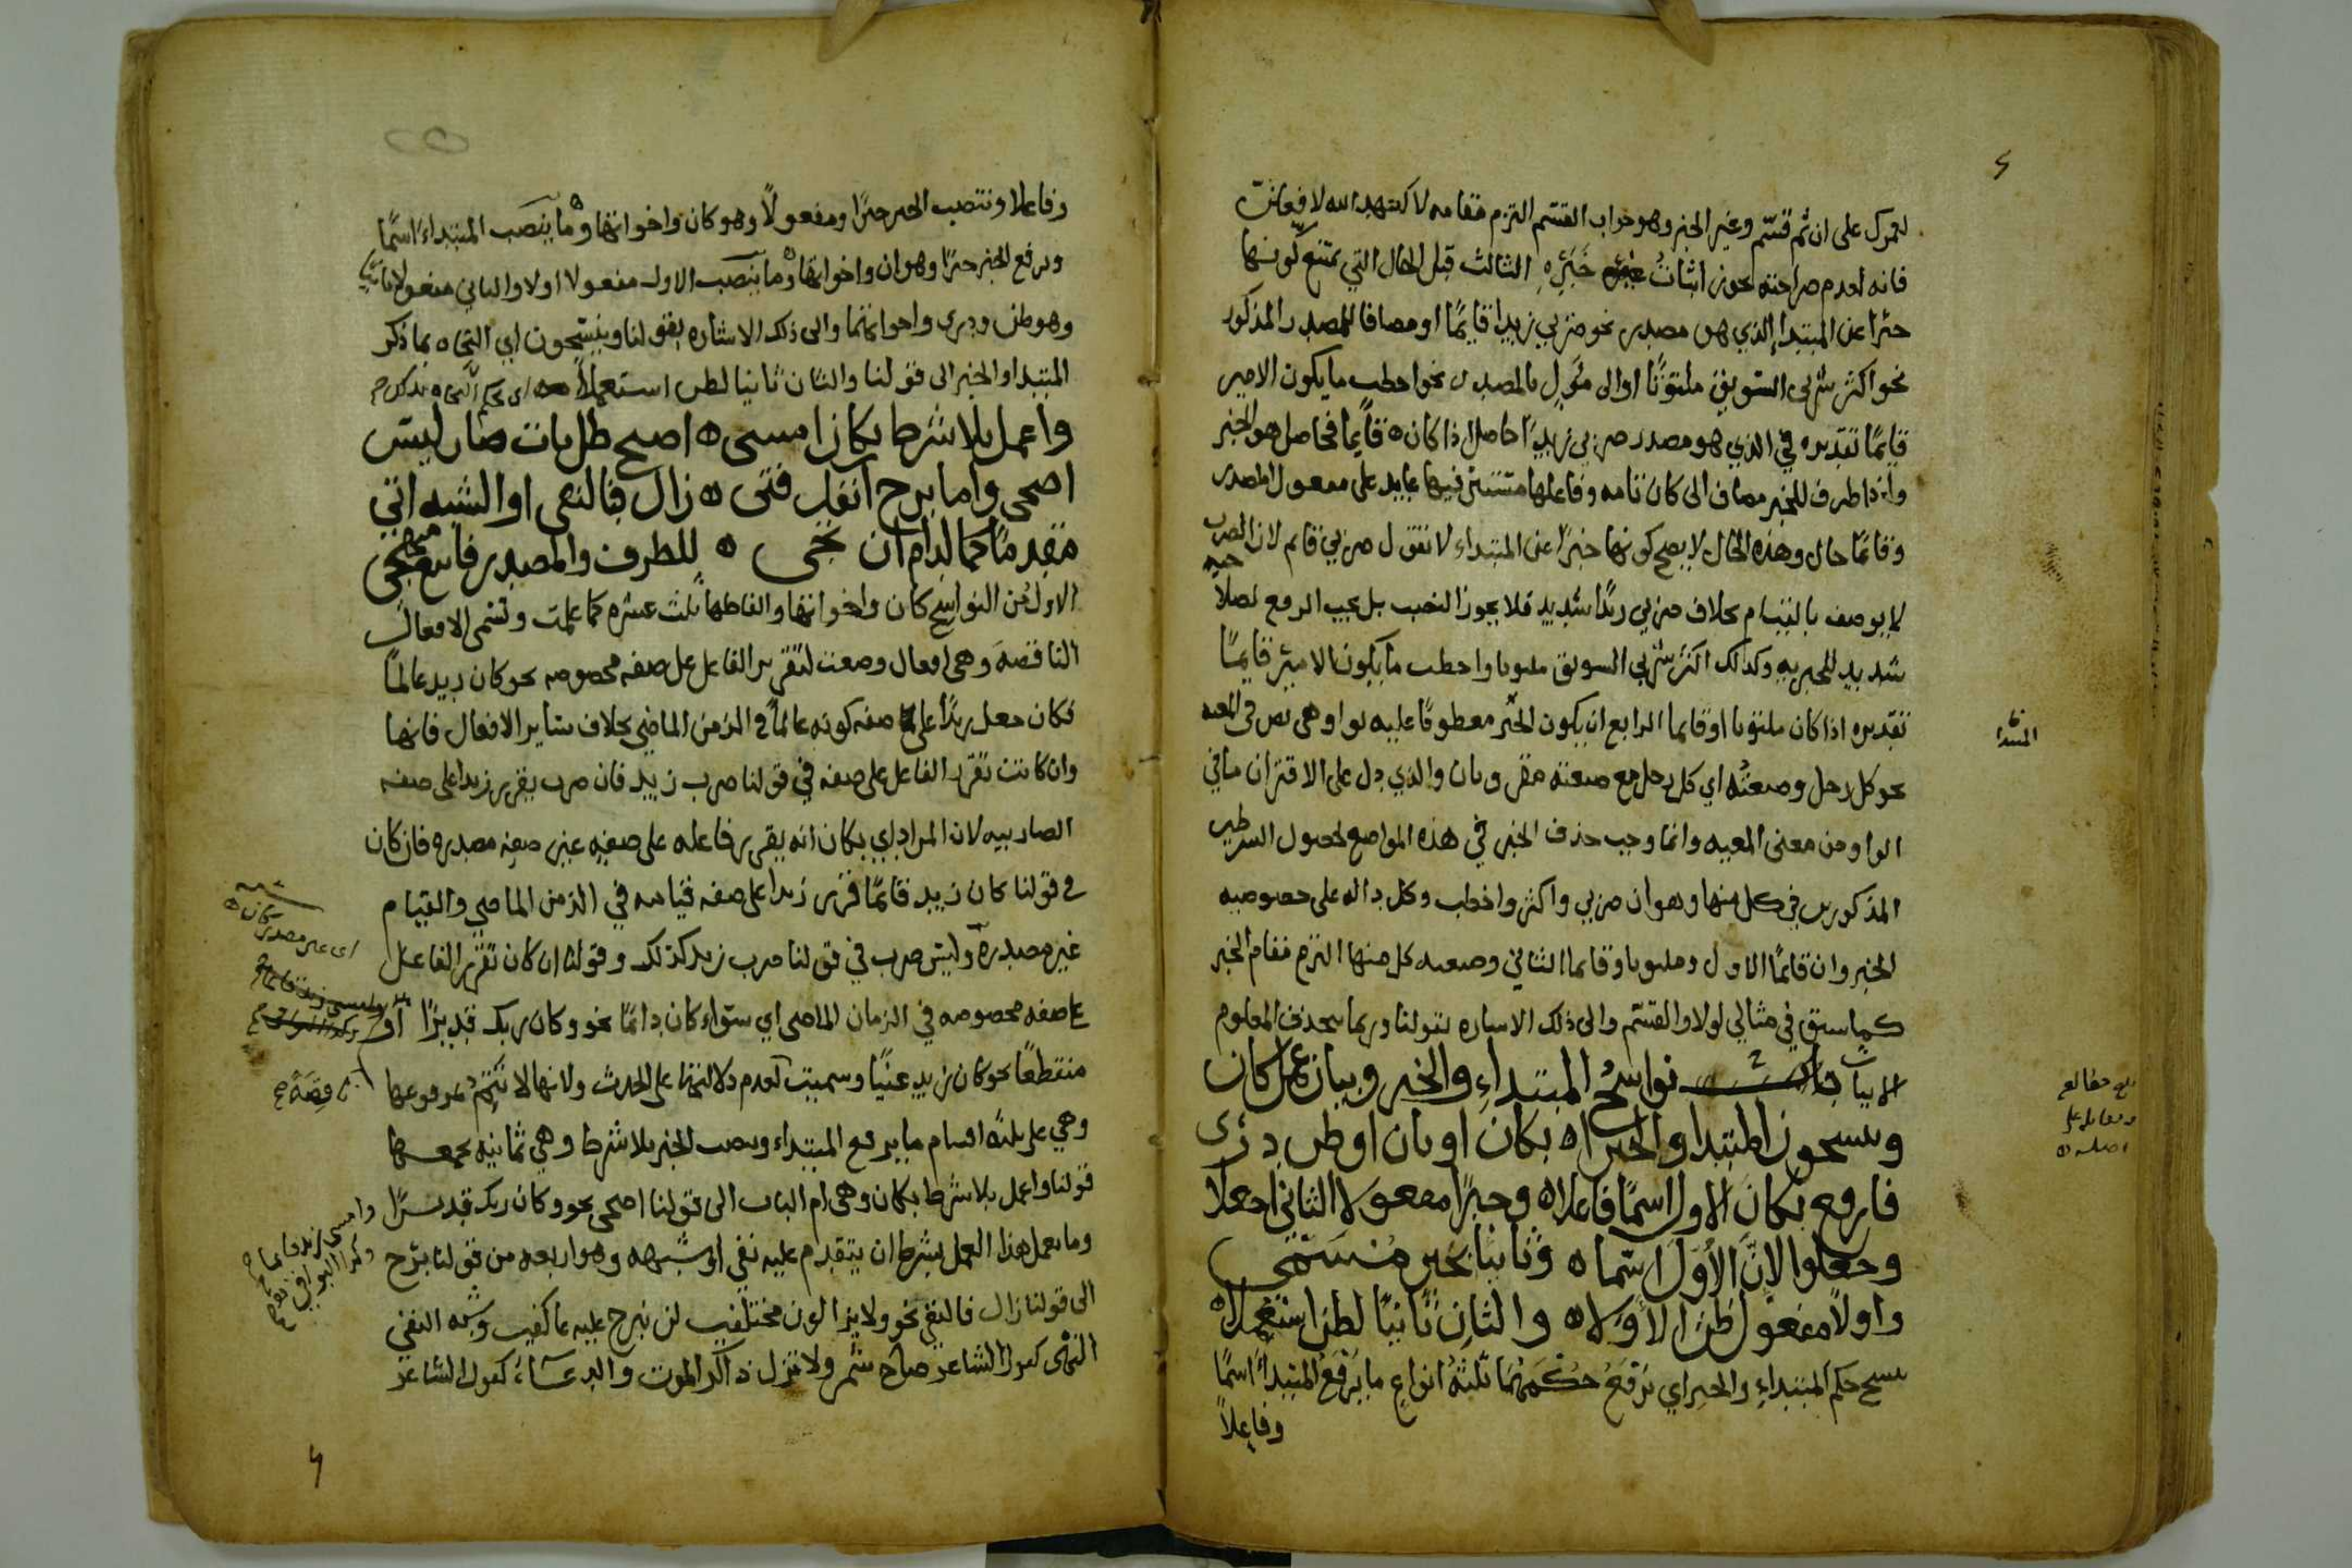 لعمرك على ان ثم قسم وغير الخبر وهو جواب القسم التزم مقامه لا كعهد الله لافعلن
فانه لعدم صراحته يجوز اثبات خبره الثالث قبل الحال التي يمتنع كونها
خبرا عن المبتدا الذي هو مصدر نحو ضربي زيدا قايما او مضافا للمصدر المذكور
نحو اكثر شربي السويق ملتوتا او الى مؤول بالمصدر نحو اخطب ما يكون الامير
قايما تقديره في الذي هو مصدر ضربي زيدا حاصل اذا كان ه قايما فحاصل هو الخبر
واذا ظرف للخبر مضاف الى كان تامه وفاعلها مستتر فيها عايد على مفعول المصدر
وقائما حال وهذه الحال لا يصح كونها خبرا عن المبتداء لا نقول ضربي قايم لان الضرب
لا يوصف بالقيام بخلاف ضربي زيدا شديد فلا يجوز النصب بل يجب الرفع لصلاحيه
شديد للخبريه وكذلك اكثر شربي السويق ملتوتا واخطب ما يكون الامير قايما
تقديره اذا كان ملتوتا او قايما الرابع ان يكون الخبر معطوفا عليه بواو وهي نص في المعيه
المبتدا
نحو كل رجل وصنعته اي كل رجل مع صنعته مقرونان والذي دل على الاقتران ما في
الواو من معنى المعيه وانما وجب حذف الخبر في هذه المواضع لحصول الشرطين
المذكورين في كل منها وهو ان ضربي واكثر واخطب وكل داله على خصوصيه
الخبر وان قائما الاول وملتوتا وقايما الثاني وصنعته كل منها التزم مقام الخبر
كما سبق في مثالي لولا والقسم والى ذلك الاشاره بقولنا وربما يحذف المعلوم
الابيات باب نواسخ المبتداء والخبر وبيان عمل كان
وينسحون المبتدا والخبرا ه بكان او بان او ظن درى
فارفع بكان الاول اسما فاعلا ه وخبرا مفعولا الثاني اجعلا
وجعلوا لان الاول اسما ه وثانيا بخبر مسمى
واولا مفعول ظن الاولا ه والثان ثانيا لظن استعملا ه
ينسخ حكم المبتداء والخبر اي يرفع حكمهما ثلثه انواع ما يرفع المبتداء اسما
وفاعلا
وفاعلا وينتصب الخبر خبرا ومفعولا وهو كان واخواتها وما ينصب المبتداء اسما
ويرفع الخبر خبرا وهو ان واخواتها وما ينصب الاول مفعولا اولا والثاني مفعولا ثانيا
وهو ظن ودرى واخواتهما والى ذلك الاشاره بقولنا وينسحون اي النحاه بما ذكر
المبتدا والخبر الى قولنا والثان ثانيا لظن استعملا
واعمل بلا شرط بكان امسى ه اصبح ظل بات صار ليس
اضحى واما برح انفك فتى ه زال فبالنفي او الشبه اتي
مقدما كما لدام ان تجى ه للظرف والمصدر
الاول من النواسخ كان واخواتها والفاظها ثلث عشره كما علمت وتسمى الافعال
الناقصه وهي افعال وضعت لتقرير الفاعل على صفه مخصوصه نحو كان زيد عالما
فكان جعل زيدا على صفه كونه عالما في الزمن الماضي بخلاف ساير الافعال فانها
وان كانت تقرر الفاعل على صفه في قولنا ضرب زيد فان ضرب يقرر زيدا على صفه
الضاربيه لان المراد اي بكان انه يقرر فاعله على صفه غير صفه مصدره فان كان
في قولنا كان زيد قائما قرر زيدا على صفه قيامه في الزمن الماضي والقيام
غير مصدره وليس ضرب في قولنا ضرب زيد كذلك وقولنا ان كان تقرر الفاعل
على صفه مخصوصه في الزمان الماضي اي سواء كان دائما نحو وكان ربك قديرا او
منقطعا نحو كان زيد غنيا وسميت لعدم دلالتها على الحدث ولانها لا تتم بمرفوعها
ناقصة
وهي على ثلثه اقسام ما يرفع المبتداء وينصب الخبر بلا شرط وهي ثمانيه يجمعها
قولنا واعمل بلا شرط بكان وهي ام الباب الى قولنا اضحى نحو وكان ربك قديرا
وما يعمل هذا العمل بشرط ان يتقدم عليه نفي او شبهه وهو اربعه من قولنا برح
الى قولنا زال فالنفي نحو ولا يزالون مختلفين لن نبرح عليه عاكفين وشبه النفي
النهى كقول الشاعر صاح شمر ولا تزل ذاكر الموت والدعاء كقول الشاعر